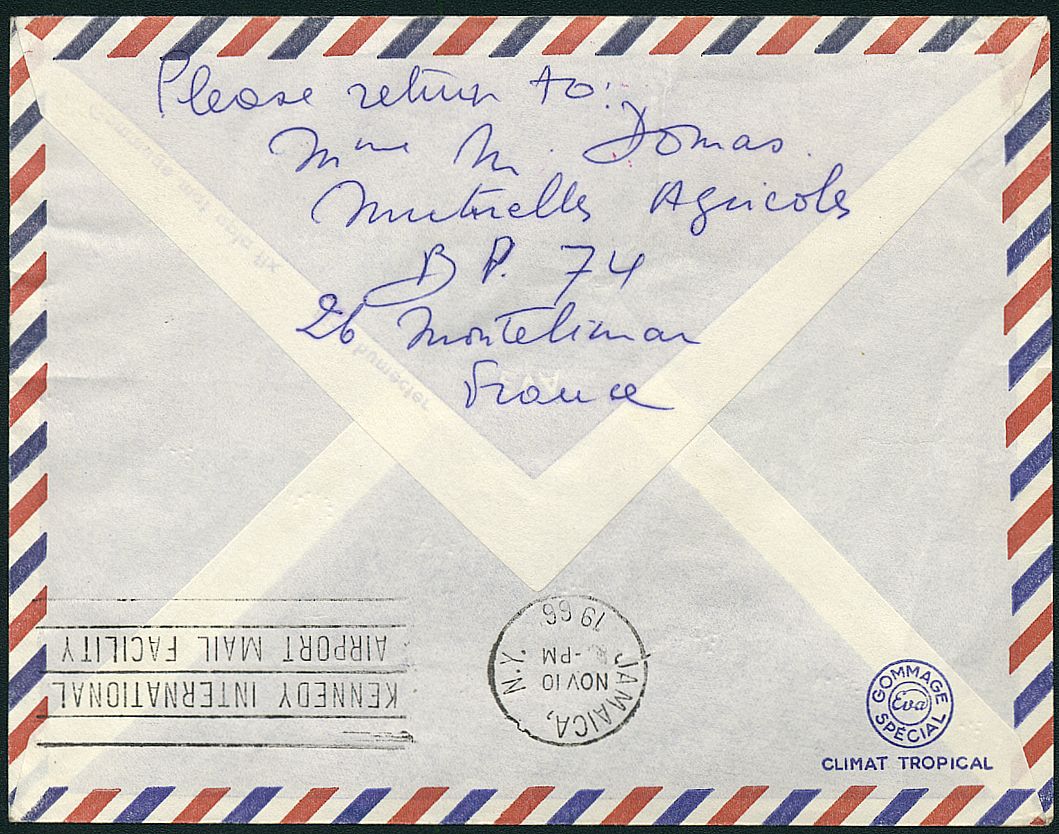 Please return to:
Mme M. Domas.
Mutuelles Agricoles
B P. 74
26 Montelimar
France
humecter
KENNEDY INTERNATIONAL
AIRPORT MAIL FACILITY
JAMAICA, N.Y.
NOV 10
-PM
19 66
GOMMAGE
Eva
SPÉCIAL
CLIMAT TROPICAL